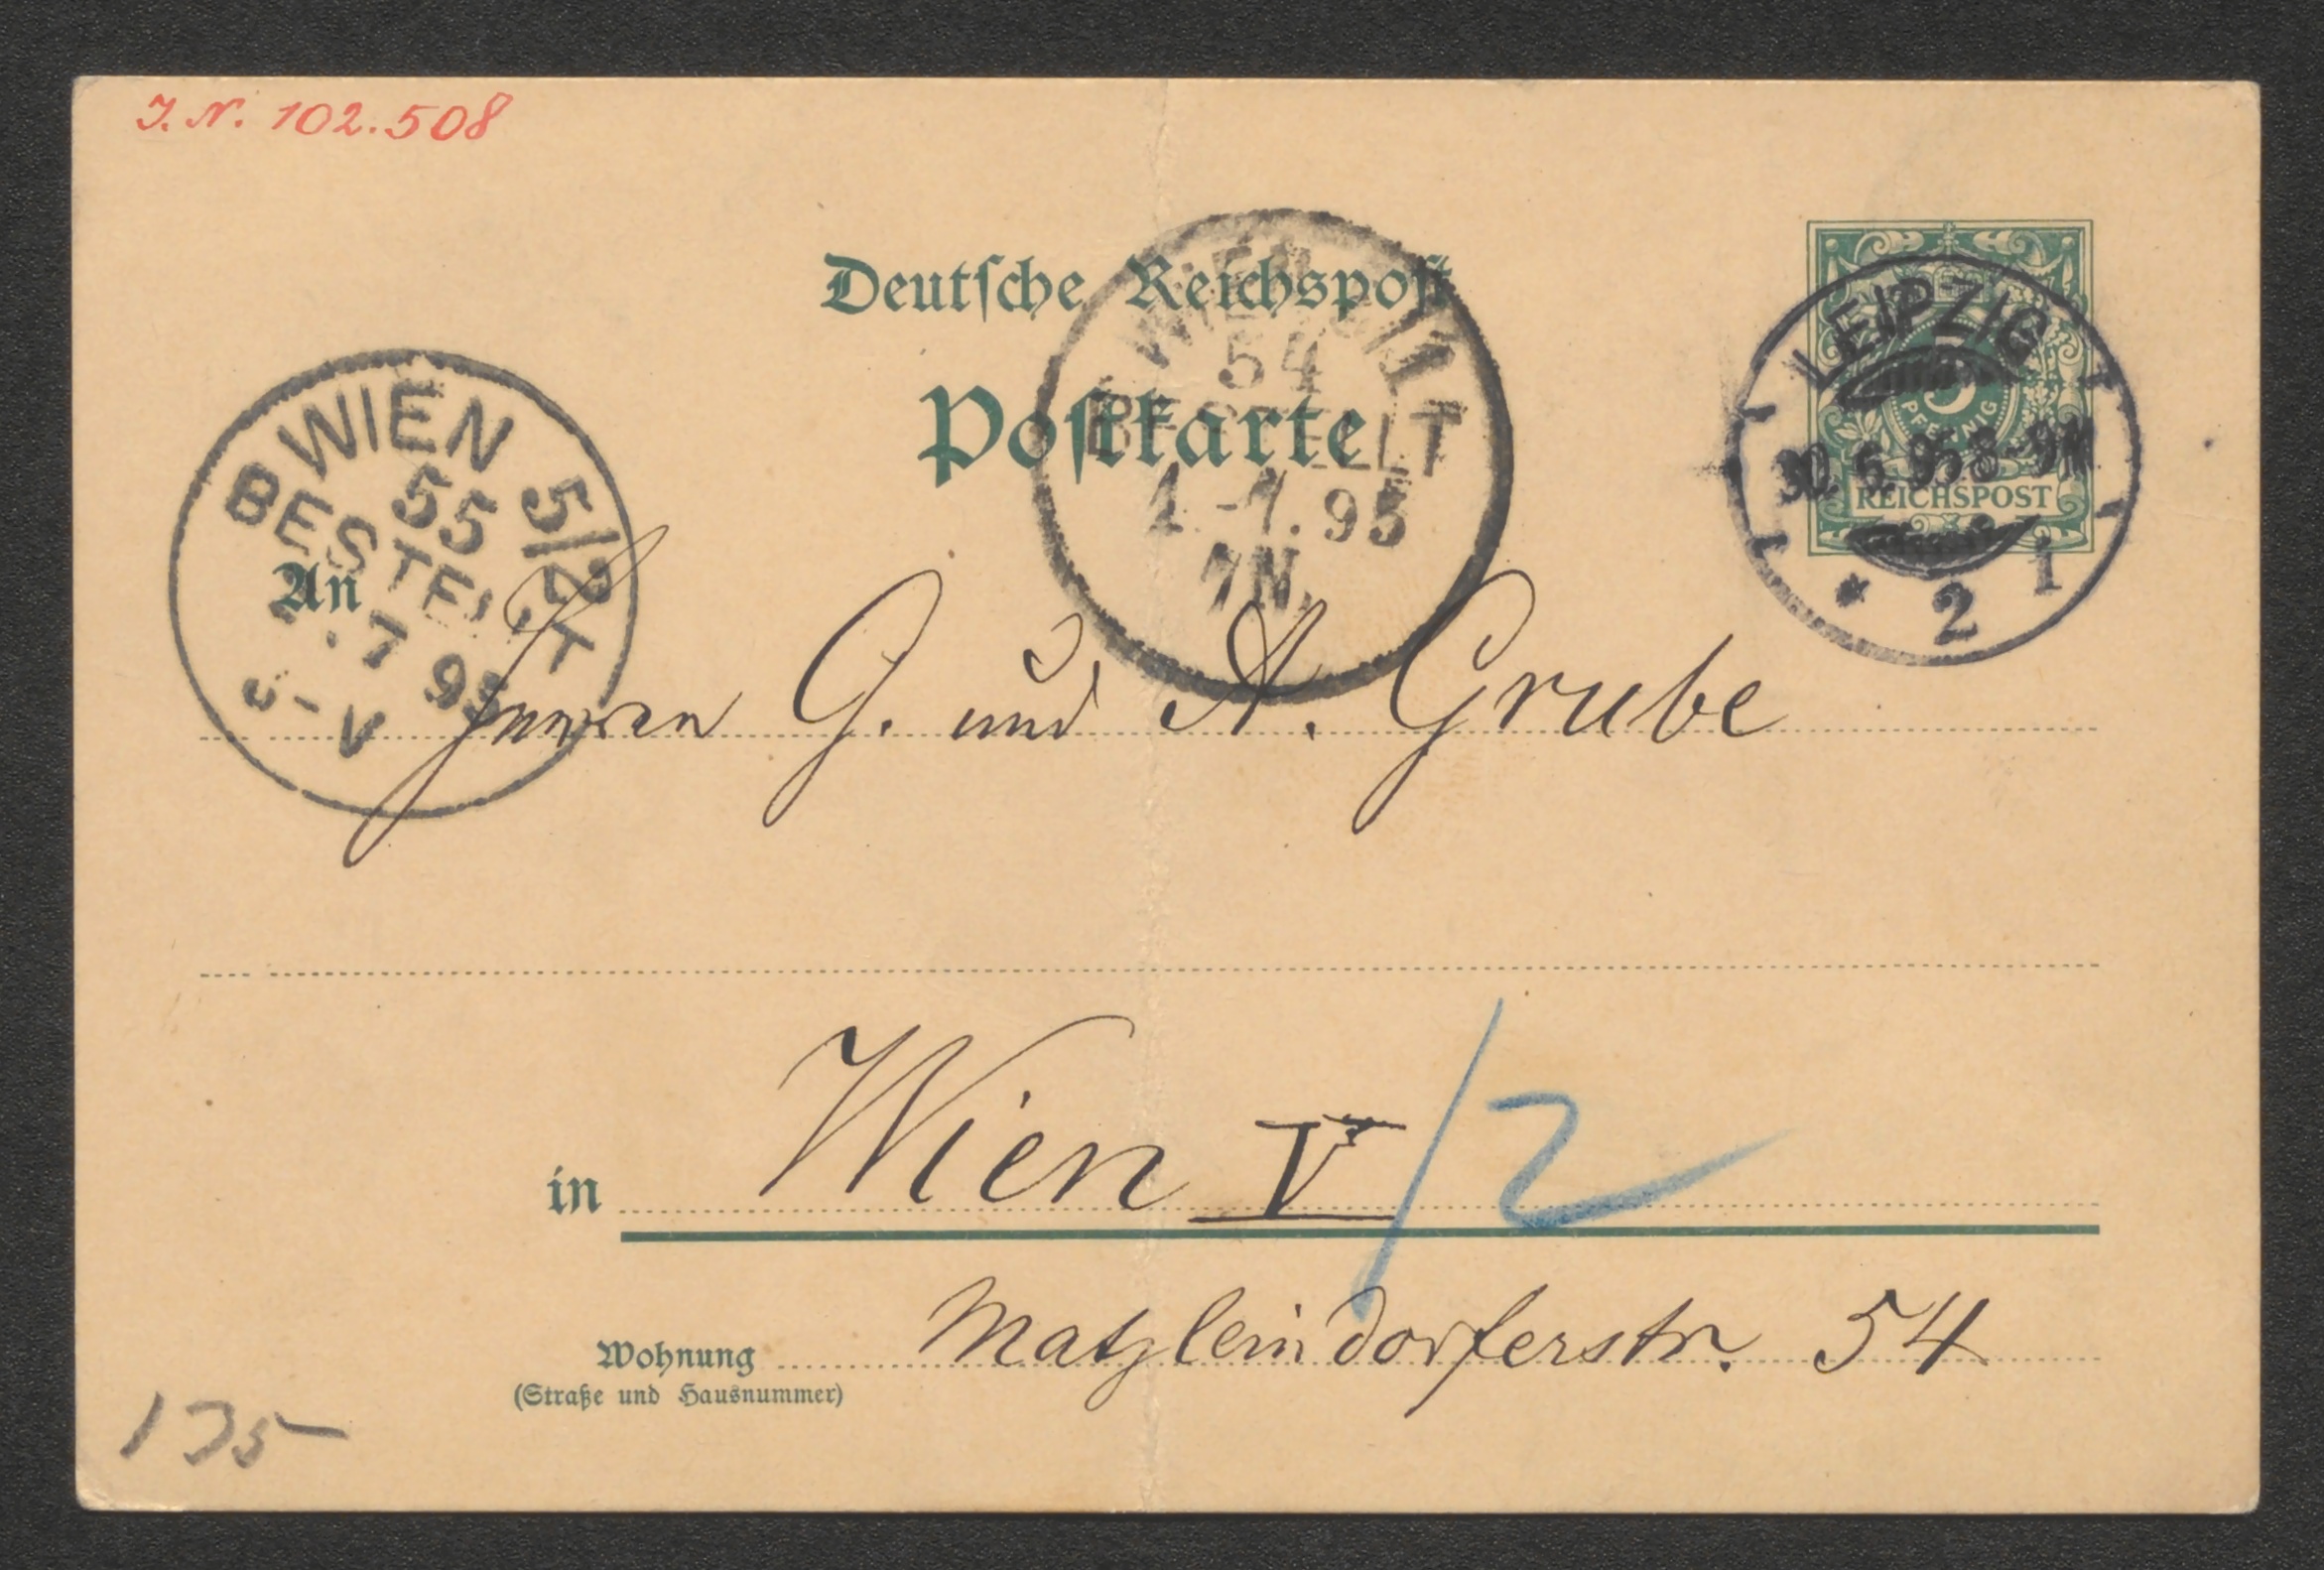 J. N. 102.508
Deutsche Reichspost
Postkarte
5
PFENNIG
REICHSPOST
LEIPZIG
30. 6. 95 8-9 N
* 2 1
WIEN
54
BESTELLT
1.-7.95
7N.
WIEN 5/2
55
BESTELLT
2.7 95
-V
An
Herren G. und A. Grube
in Wien V/2
Wohnung Matzleindorferstr. 54
(Straße und Hausnummer)